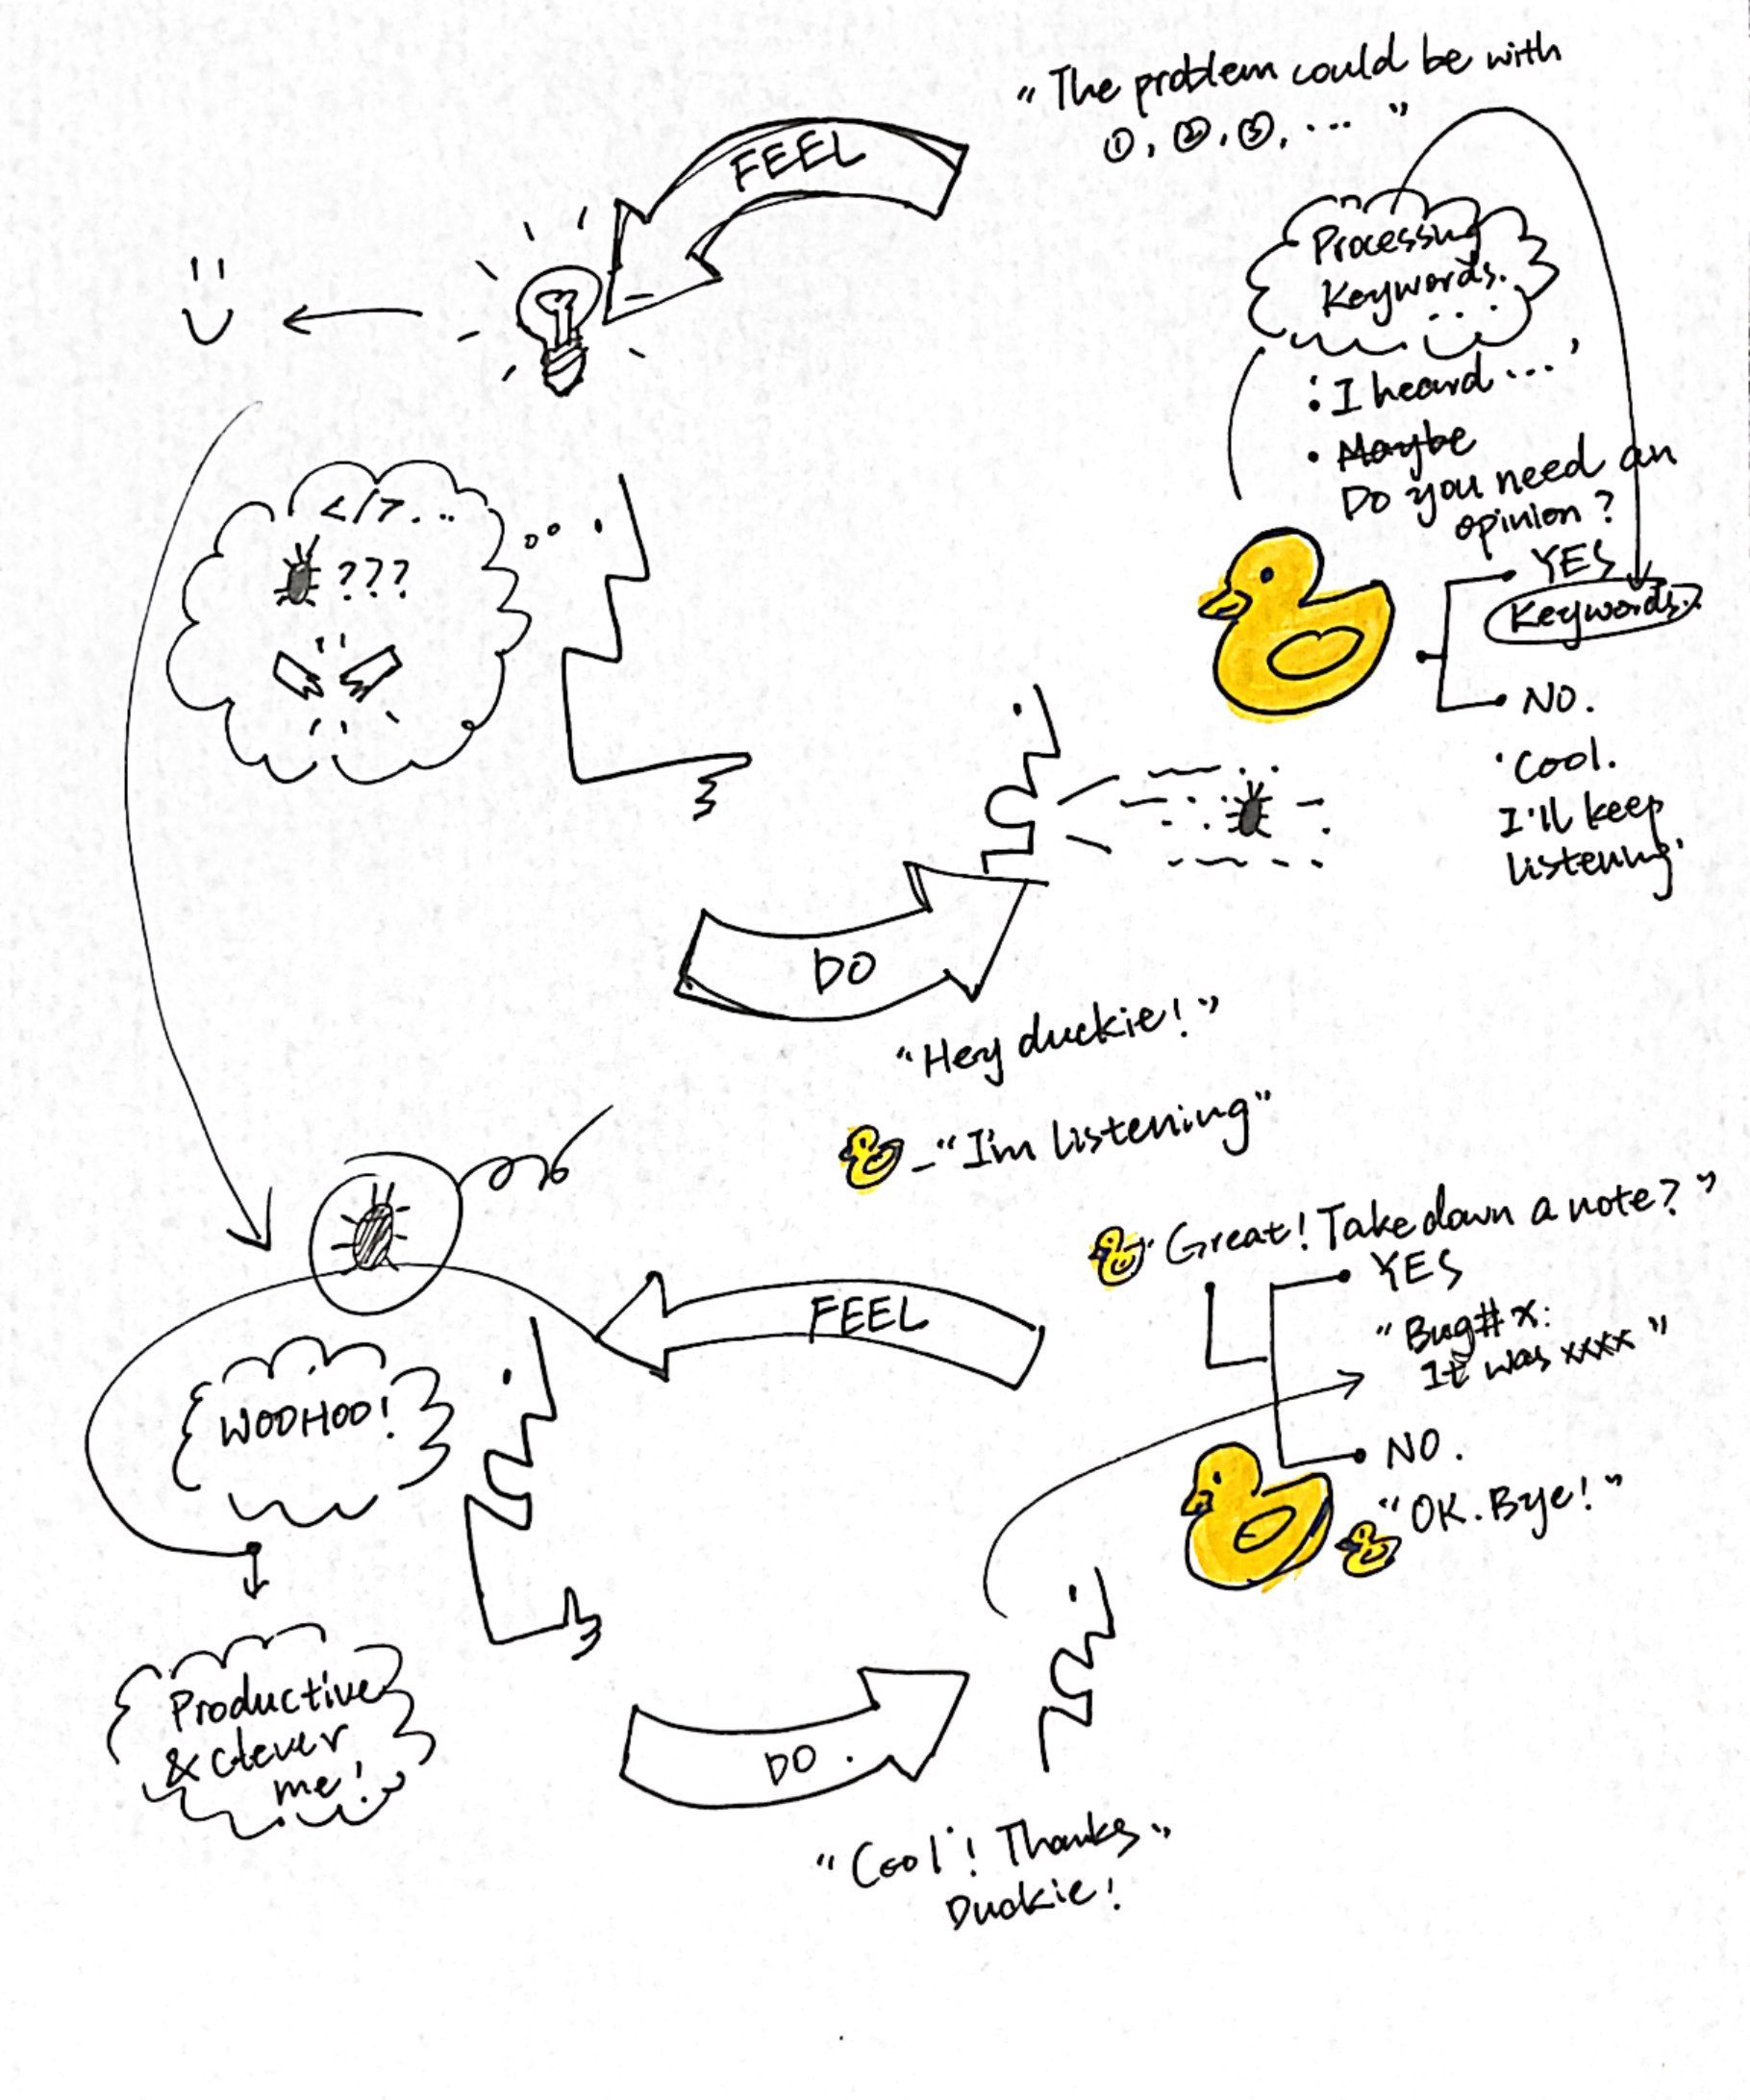 "The problem could be with
①, ②, ③, ... "
FEEL
Processing
Keywords.
...
: I heard ... '
• Maybe
Do you need an
opinion?
YES
Keywords.
NO.
'Cool.
I'll keep
listening'
</>...
???
DO
"Hey duckie!"
- "I'm listening"
"Great! Take down a note?"
YES
"Bug# x:
It was xxxx"
NO.
"OK. Bye!"
FEEL
WOOHOO!
Productive
& Clever
me!
DO.
"Cool! Thanks
Duckie!"